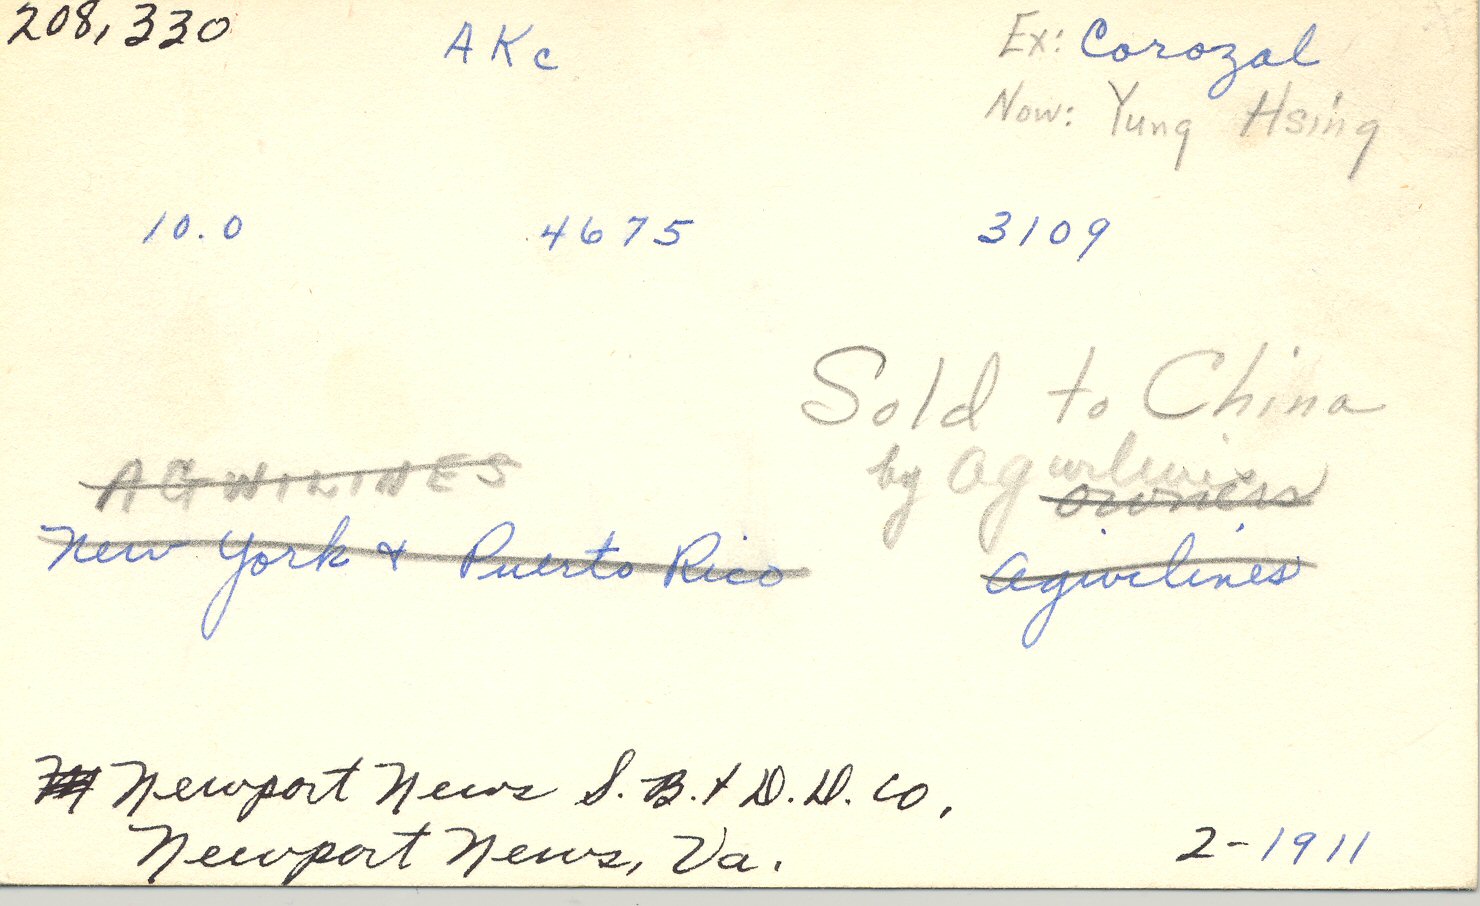 208,330 AKc Ex: Corozal
Now: Yung Hsing
10.0 4675 3109
Sold to China
by Agwilines
owners
AGWILINES
New York & Puerto Rico Agwilines
Newport News S. B. & D. D. Co.
Newport News, Va. 2-1911